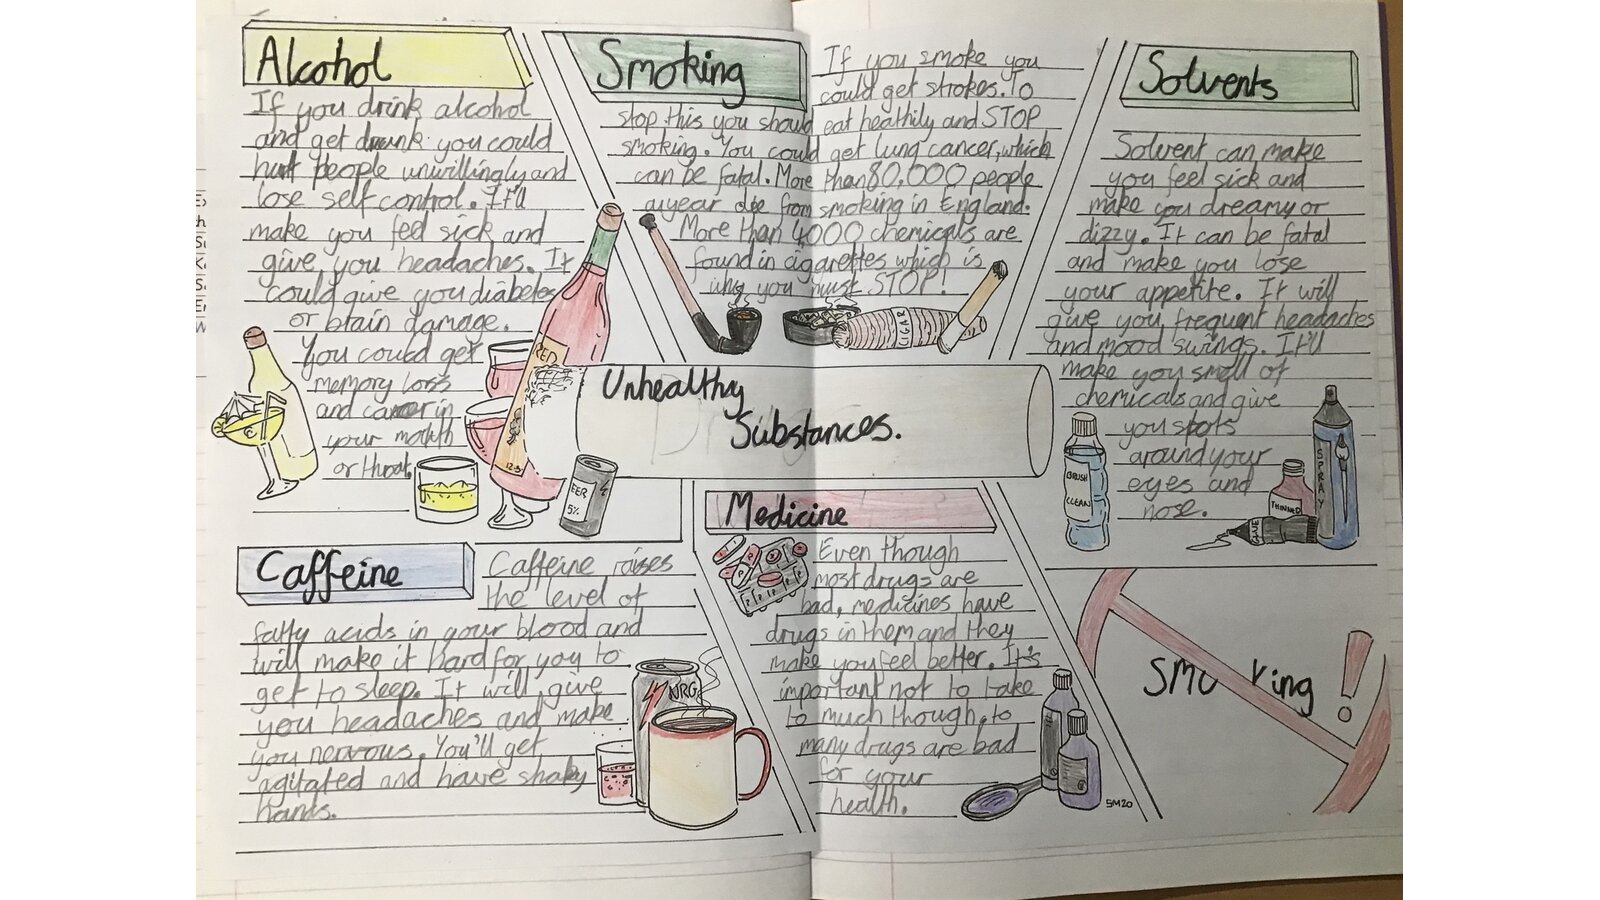 Alcohol
If you drink alcohol
and get drunk you could
hurt people unwillingly and
lose self control. It'll
make you feel sick and
give you headaches. It
could give you diabetes
or brain damage.
You could get
memory loss
and cancer in
your mouth
or throat.
RED
12.5
BEER
5%
Smoking
If you smoke you
could get strokes. To
stop this you should eat heathily and STOP
smoking. You could get lung cancer, which
can be fatal. More than 80,000 people
a year die from smoking in England.
More than 4000 chemicals are
found in cigarettes which is
why you must STOP!
CIGAR
Solvents
Solvent can make
you feel sick and
make you dreamy or
dizzy. It can be fatal
and make you lose
your appetite. It will
give you frequent headaches
and mood swings. It'll
make you smell of
chemicals and give
you spots
around your
eyes and
nose.
BRUSH
CLEAN
THINNER
SPRAY
GLUE
Unhealthy
Substances.
Caffeine
Caffeine raises
the level of
fatty acids in your blood and
will make it hard for you to
get to sleep. It will give
you headaches and make
you nervous. You'll get
agitated and have shaky
hands.
NRG
Medicine
Even though
most drugs are
bad, medicines have
drugs in them and they
make you feel better. It's
important not to take
to much though, to
many drugs are bad
for your
health.
SM20